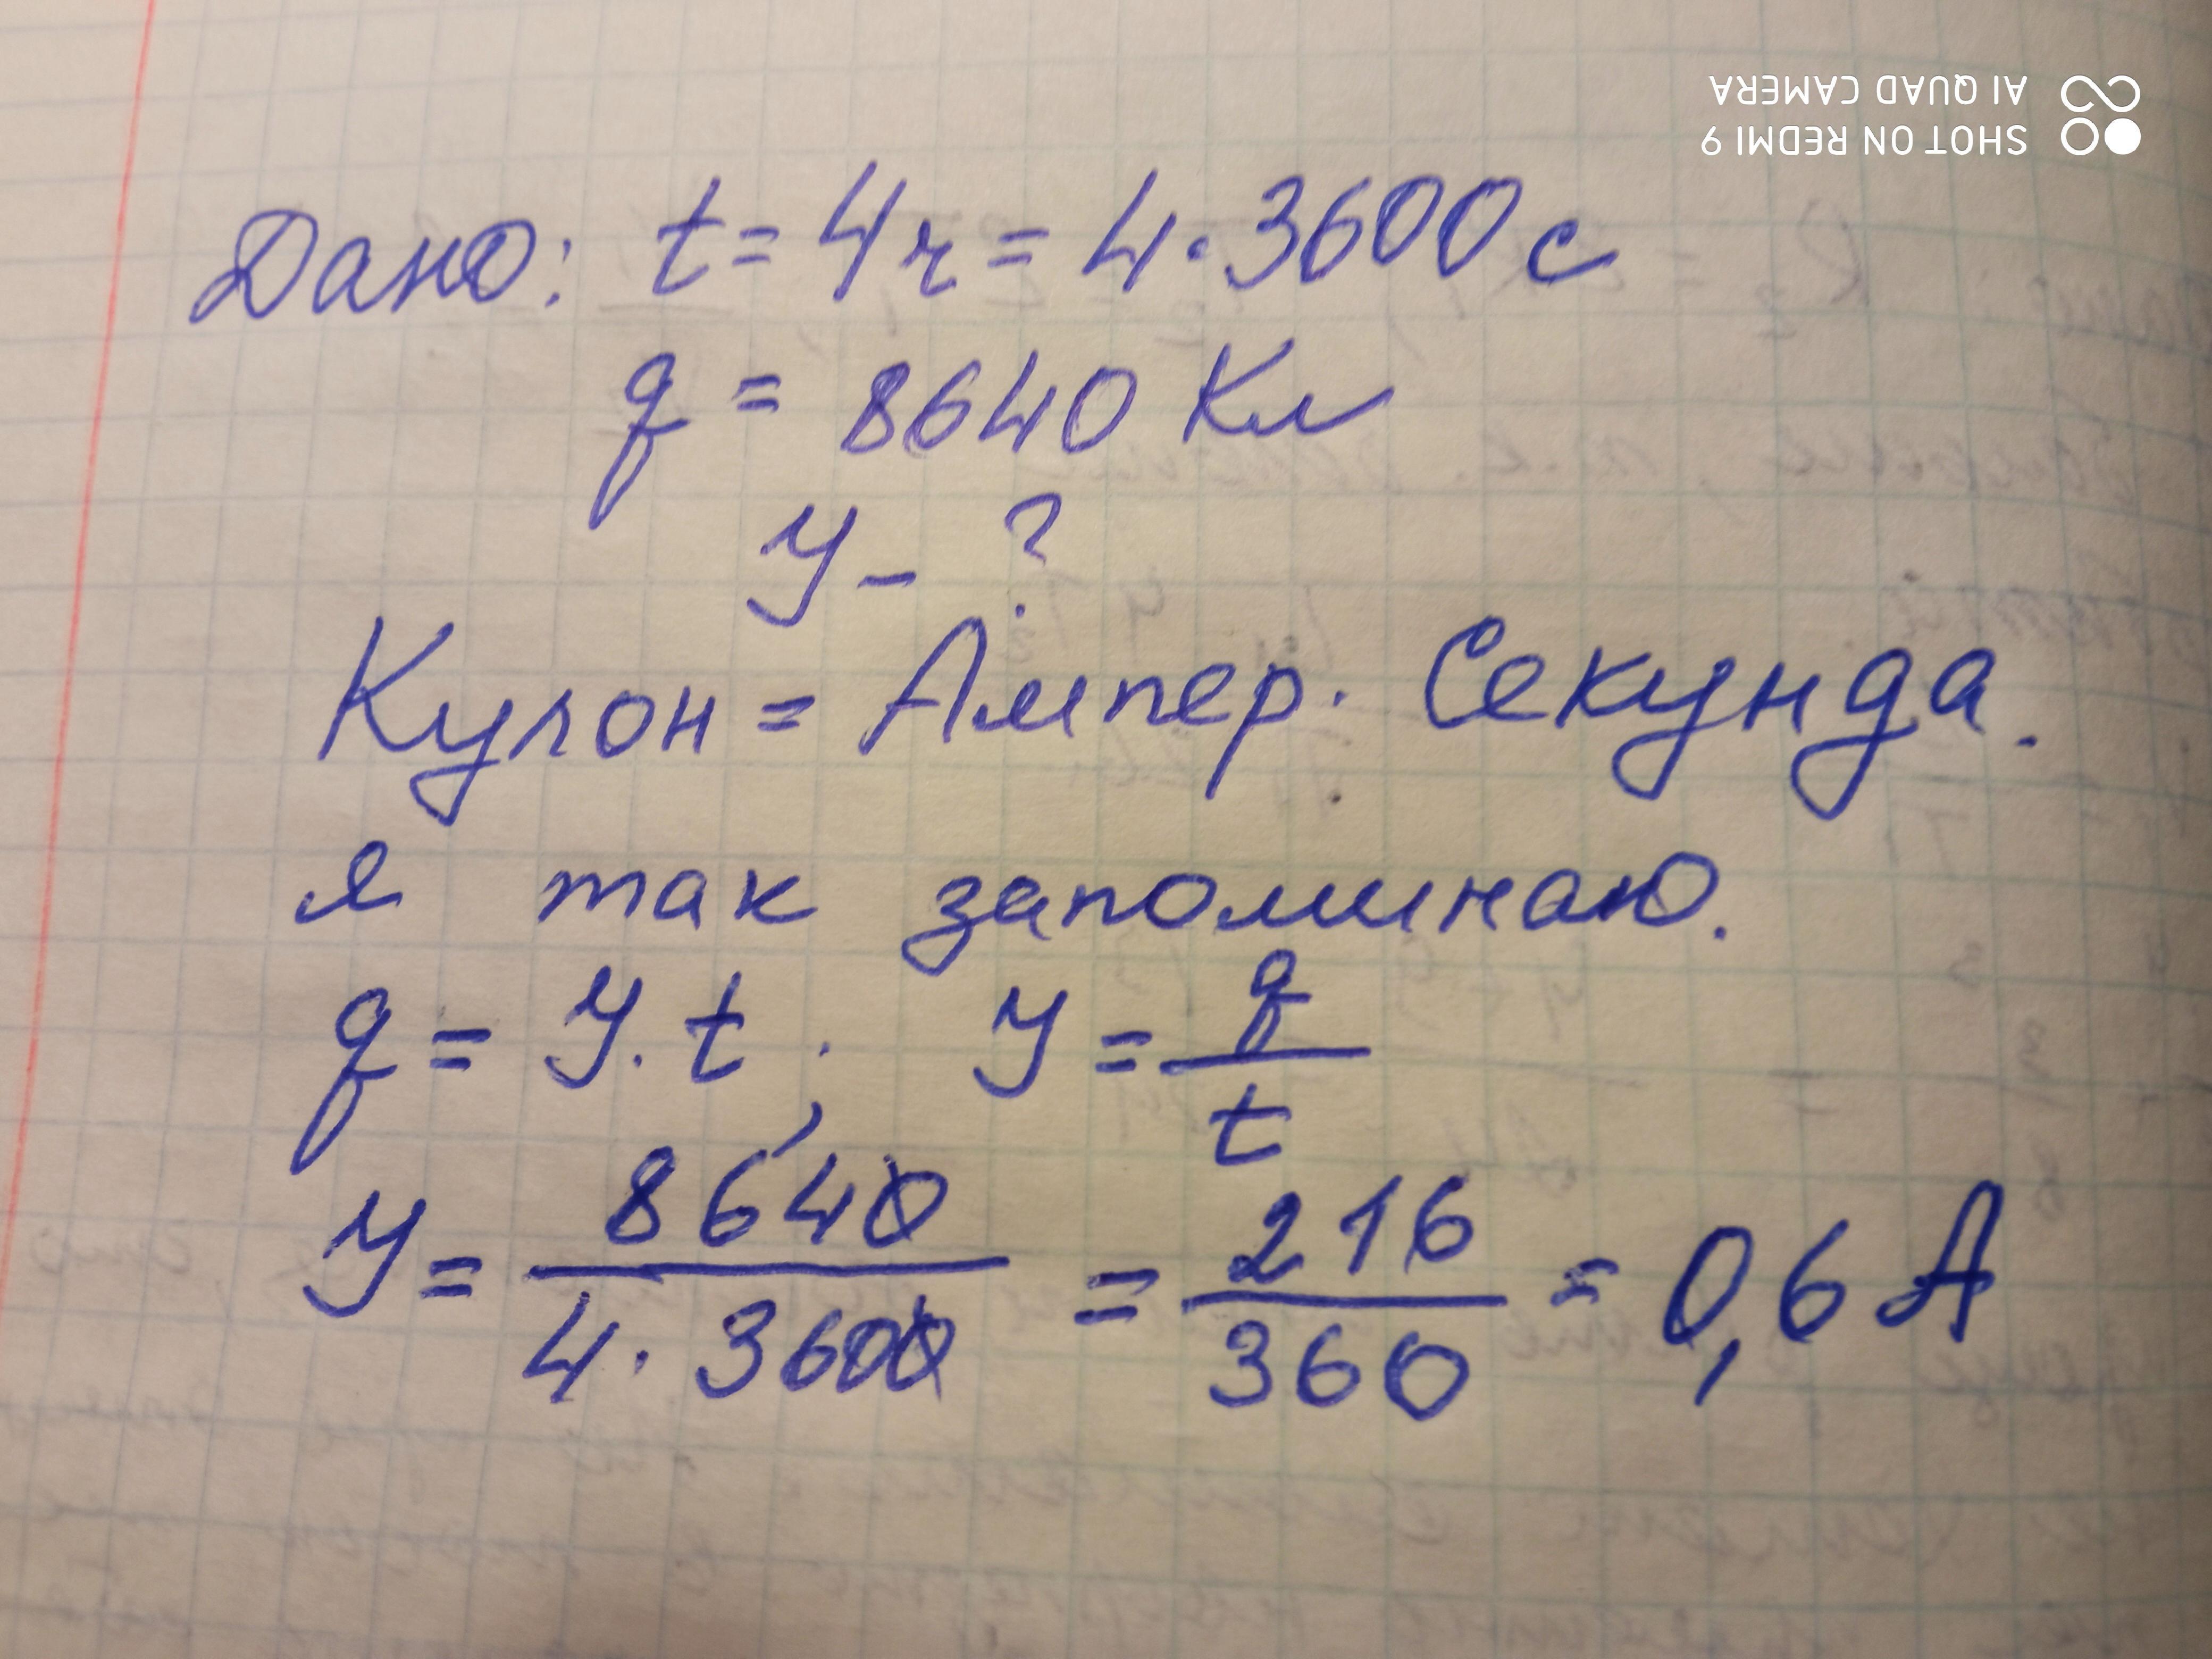 SHOT ON REDMI 9
AI QUAD CAMERA
Дано: t = 4ч = 4·3600 с
q = 8640 Кл
У - ?
Кулон = Ампер · Секунда.
я так запоминаю.
q = У · t ; У = q/t
У = 8640/(4·3600) = 216/360 = 0,6 А